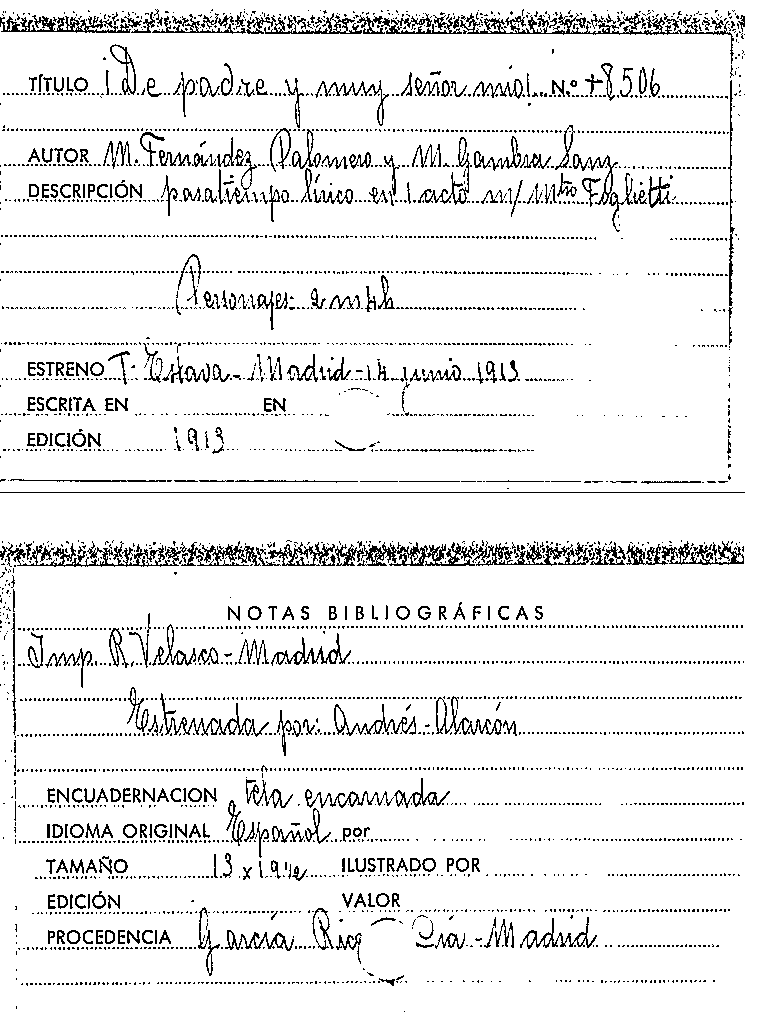 TÍTULO ¡De padre y muy señor mío! N.º +8506
AUTOR M. Fernández Palomero y M. Gambra Sanz
DESCRIPCIÓN pasatiempo lírico en 1 acto m/ Mtro Foglietti
Personajes- 2 m 4 h
ESTRENO T. Eslava- Madrid-14 junio 1913
ESCRITA EN EN
EDICIÓN 1913
NOTAS BIBLIOGRÁFICAS
Imp. R. Velasco-Madrid
Estrenada por: Andrés-Alarcón
ENCUADERNACION tela encarnada
IDIOMA ORIGINAL Español por
TAMAÑO 13 x 19 1/2 ILUSTRADO POR
EDICIÓN VALOR
PROCEDENCIA García Rico Cía-Madrid